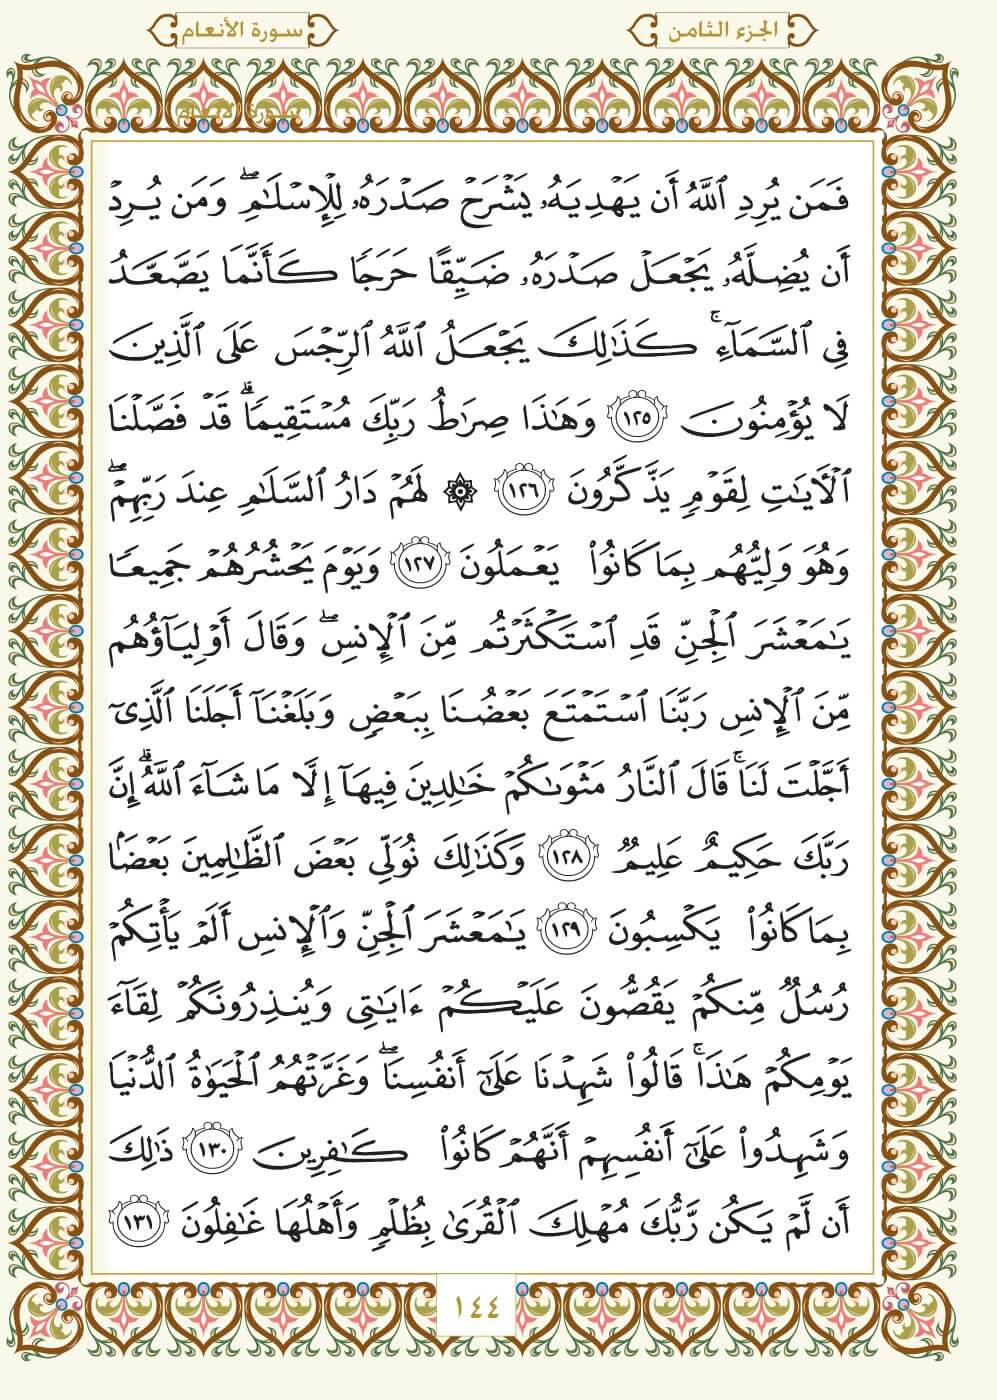 الجزء الثامن
سورة الأنعام
سورة الأنعام
فَمَن يُرِدِ ٱللَّهُ أَن يَهْدِيَهُۥ يَشْرَحْ صَدْرَهُۥ لِلْإِسْلَٰمِ ۖ وَمَن يُرِدْ
أَن يُضِلَّهُۥ يَجْعَلْ صَدْرَهُۥ ضَيِّقًا حَرَجًا كَأَنَّمَا يَصَّعَّدُ
فِى ٱلسَّمَآءِ ۚ كَذَٰلِكَ يَجْعَلُ ٱللَّهُ ٱلرِّجْسَ عَلَى ٱلَّذِينَ
لَا يُؤْمِنُونَ ١٢٥ وَهَٰذَا صِرَٰطُ رَبِّكَ مُسْتَقِيمًا ۗ قَدْ فَصَّلْنَا
ٱلْأَيَٰتِ لِقَوْمٍ يَذَّكَّرُونَ ١٢٦ ۞ لَهُمْ دَارُ ٱلسَّلَٰمِ عِندَ رَبِّهِمْ ۖ
وَهُوَ وَلِيُّهُم بِمَا كَانُوا۟ يَعْمَلُونَ ١٢٧ وَيَوْمَ يَحْشُرُهُمْ جَمِيعًا
يَٰمَعْشَرَ ٱلْجِنِّ قَدِ ٱسْتَكْثَرْتُم مِّنَ ٱلْإِنسِ ۖ وَقَالَ أَوْلِيَآؤُهُم
مِّنَ ٱلْإِنسِ رَبَّنَا ٱسْتَمْتَعَ بَعْضُنَا بِبَعْضٍ وَبَلَغْنَآ أَجَلَنَا ٱلَّذِىٓ
أَجَّلْتَ لَنَا ۚ قَالَ ٱلنَّارُ مَثْوَىٰكُمْ خَٰلِدِينَ فِيهَآ إِلَّا مَا شَآءَ ٱللَّهُ ۗ إِنَّ
رَبَّكَ حَكِيمٌ عَلِيمٌ ١٢٨ وَكَذَٰلِكَ نُوَلِّى بَعْضَ ٱلظَّٰلِمِينَ بَعْضًۢا
بِمَا كَانُوا۟ يَكْسِبُونَ ١٢٩ يَٰمَعْشَرَ ٱلْجِنِّ وَٱلْإِنسِ أَلَمْ يَأْتِكُمْ
رُسُلٌ مِّنكُمْ يَقُصُّونَ عَلَيْكُمْ ءَايَٰتِى وَيُنذِرُونَكُمْ لِقَآءَ
يَوْمِكُمْ هَٰذَا ۚ قَالُوا۟ شَهِدْنَا عَلَىٰٓ أَنفُسِنَا ۖ وَغَرَّتْهُمُ ٱلْحَيَوٰةُ ٱلدُّنْيَا
وَشَهِدُوا۟ عَلَىٰٓ أَنفُسِهِمْ أَنَّهُمْ كَانُوا۟ كَٰفِرِينَ ١٣٠ ذَٰلِكَ
أَن لَّمْ يَكُن رَّبُّكَ مُهْلِكَ ٱلْقُرَىٰ بِظُلْمٍ وَأَهْلُهَا غَٰفِلُونَ ١٣١
١٤٤